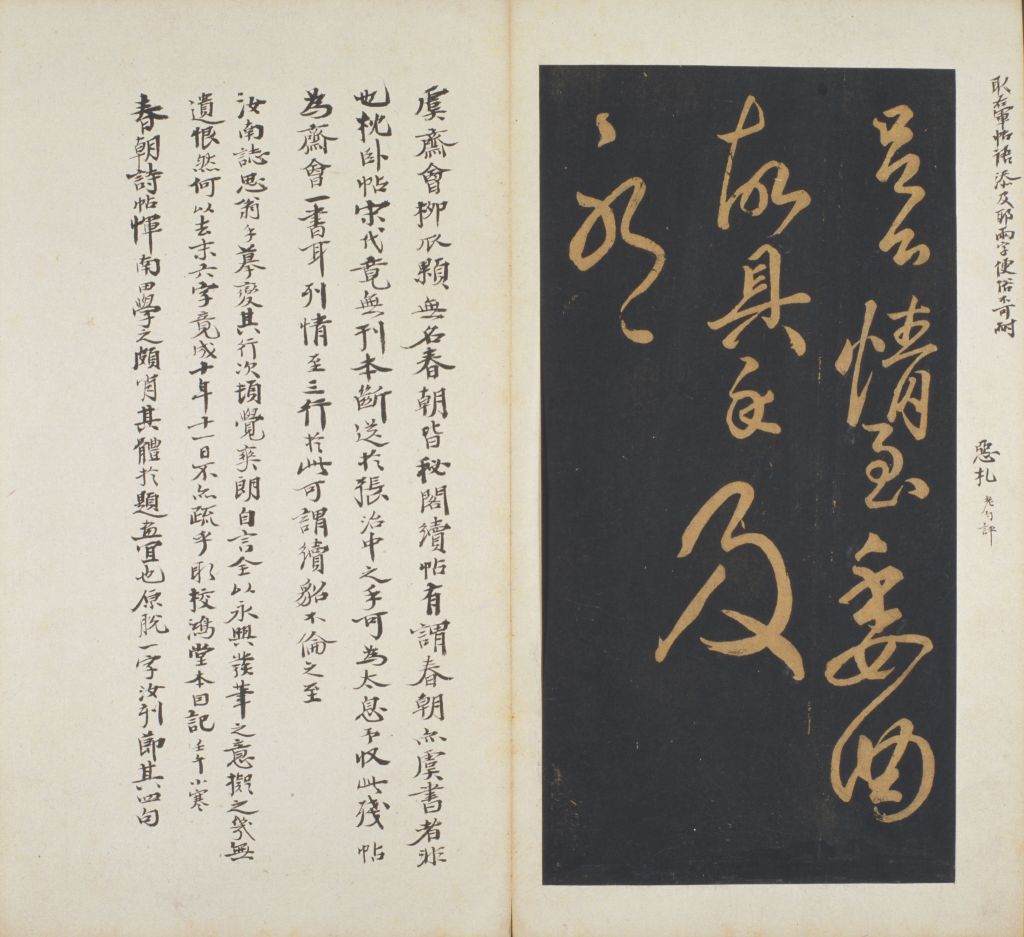 取右軍帖語添及耶兩字便俗不可耐
惡札
老勻評
吾公情至委曲
故具示及
永
虞齋會柳瓜顆無名春朝皆秘閣續帖有謂春朝亦虞書者非
也枕卧帖宋代竟無刊本斷送於張治中之手可為太息予収此殘帖
為齋會一書耳列情至三行於此可謂續貂不倫之至
汝南誌思翁手摹變其行次頓覺爽朗自言全以永興發筆之意擬之幾無
遺恨然何以去末六字竟成十年十一日不亦疏乎耶校鴻堂本因記壬午小寒
春朝詩帖惲南田學之頗肖其體於題畫宜也原脫一字汝刊節其四句